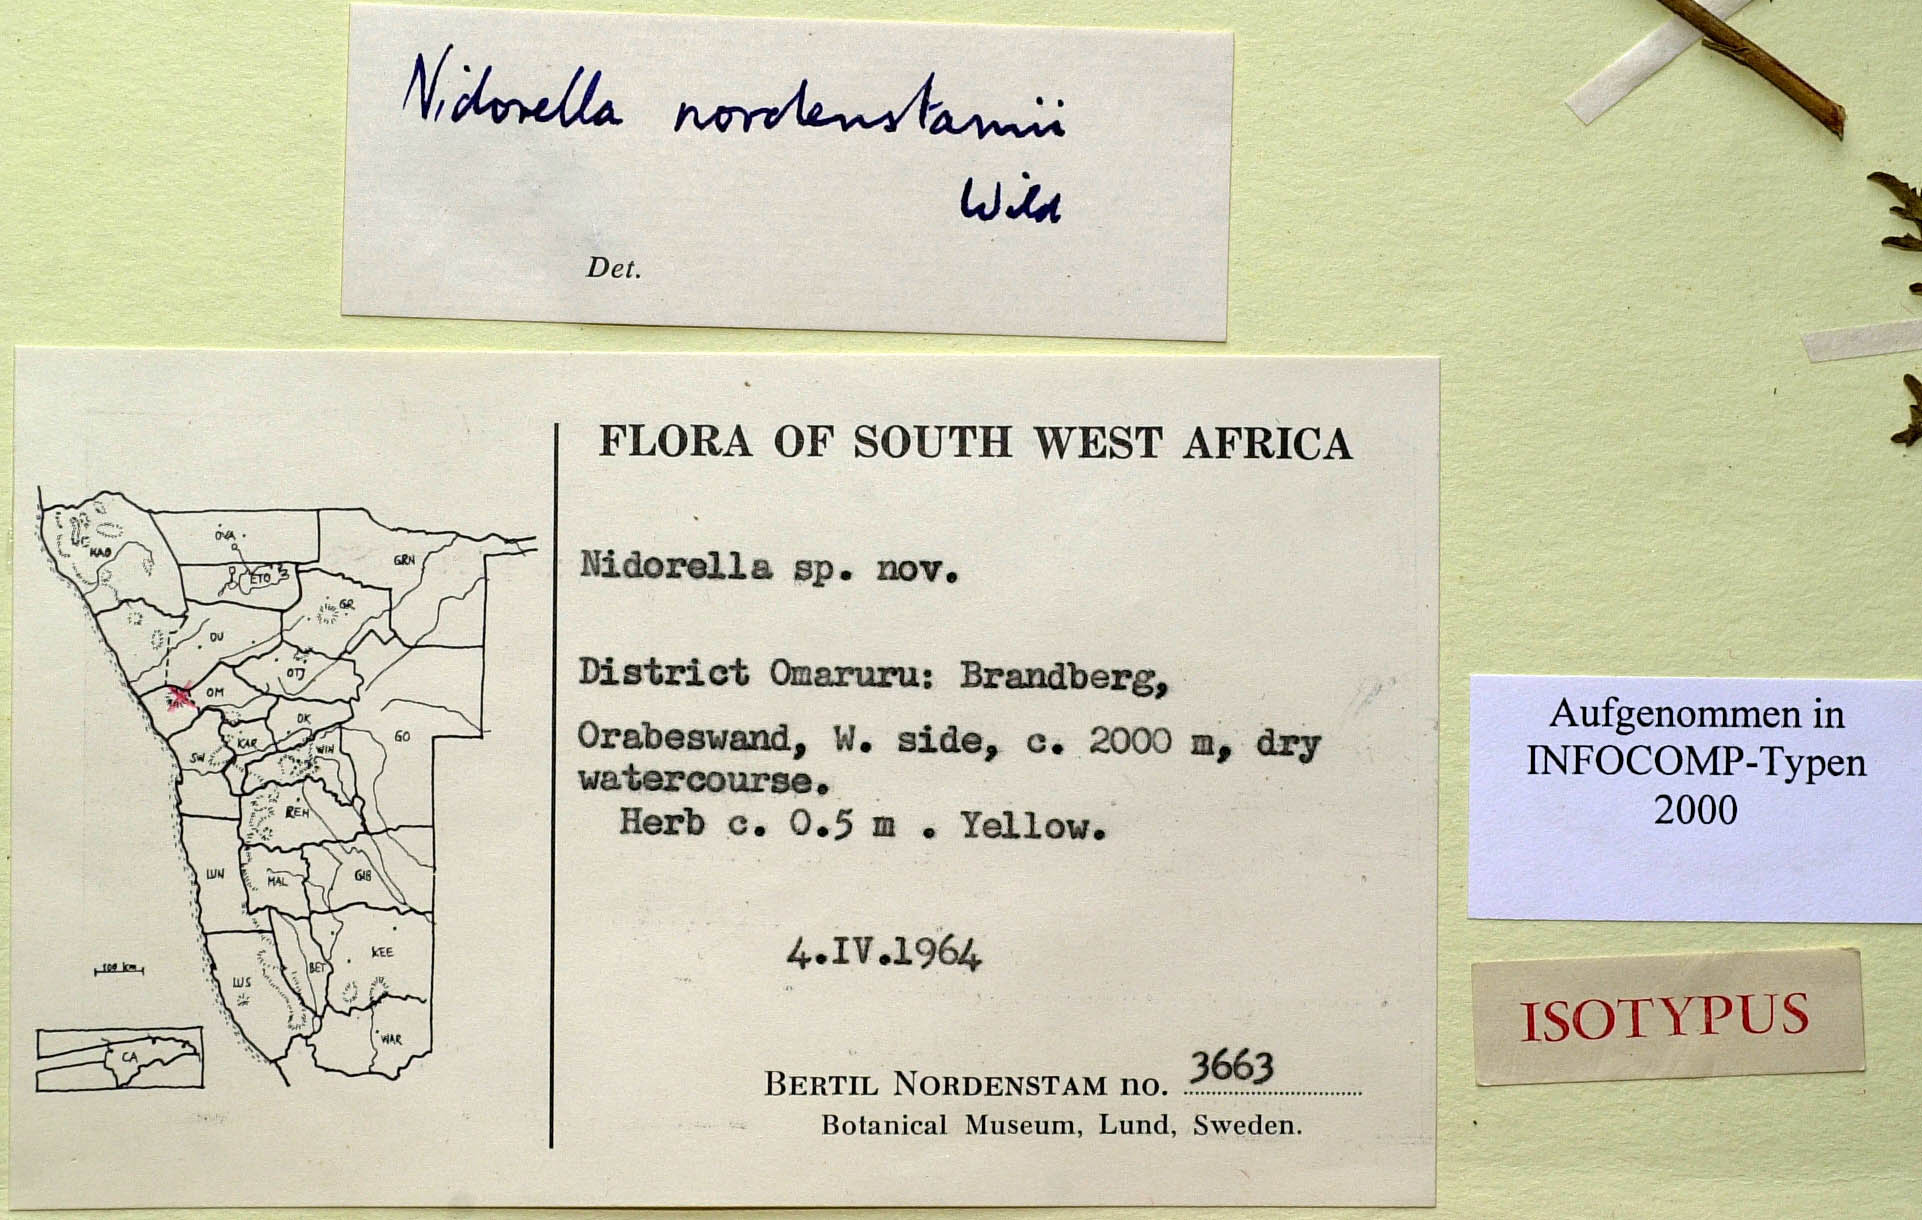 Nidorella nordenstamii
Wild
Det.
FLORA OF SOUTH WEST AFRICA
Nidorella sp. nov.
District Omaruru: Brandberg,
Orabeswand, W. side, c. 2000 m, dry
watercourse.
Herb c. 0.5 m . Yellow.
4.IV.1964
BERTIL NORDENSTAM no. 3663
Botanical Museum, Lund, Sweden.
KAO
OVA
ETO
GRN
GR
OU
OTJ
OM
OK
GO
KAR
SW
WIN
REH
LUN
MAL
GIB
KEE
BET
LUS
WAR
100 km
CA
Aufgenommen in
INFOCOMP-Typen
2000
ISOTYPUS